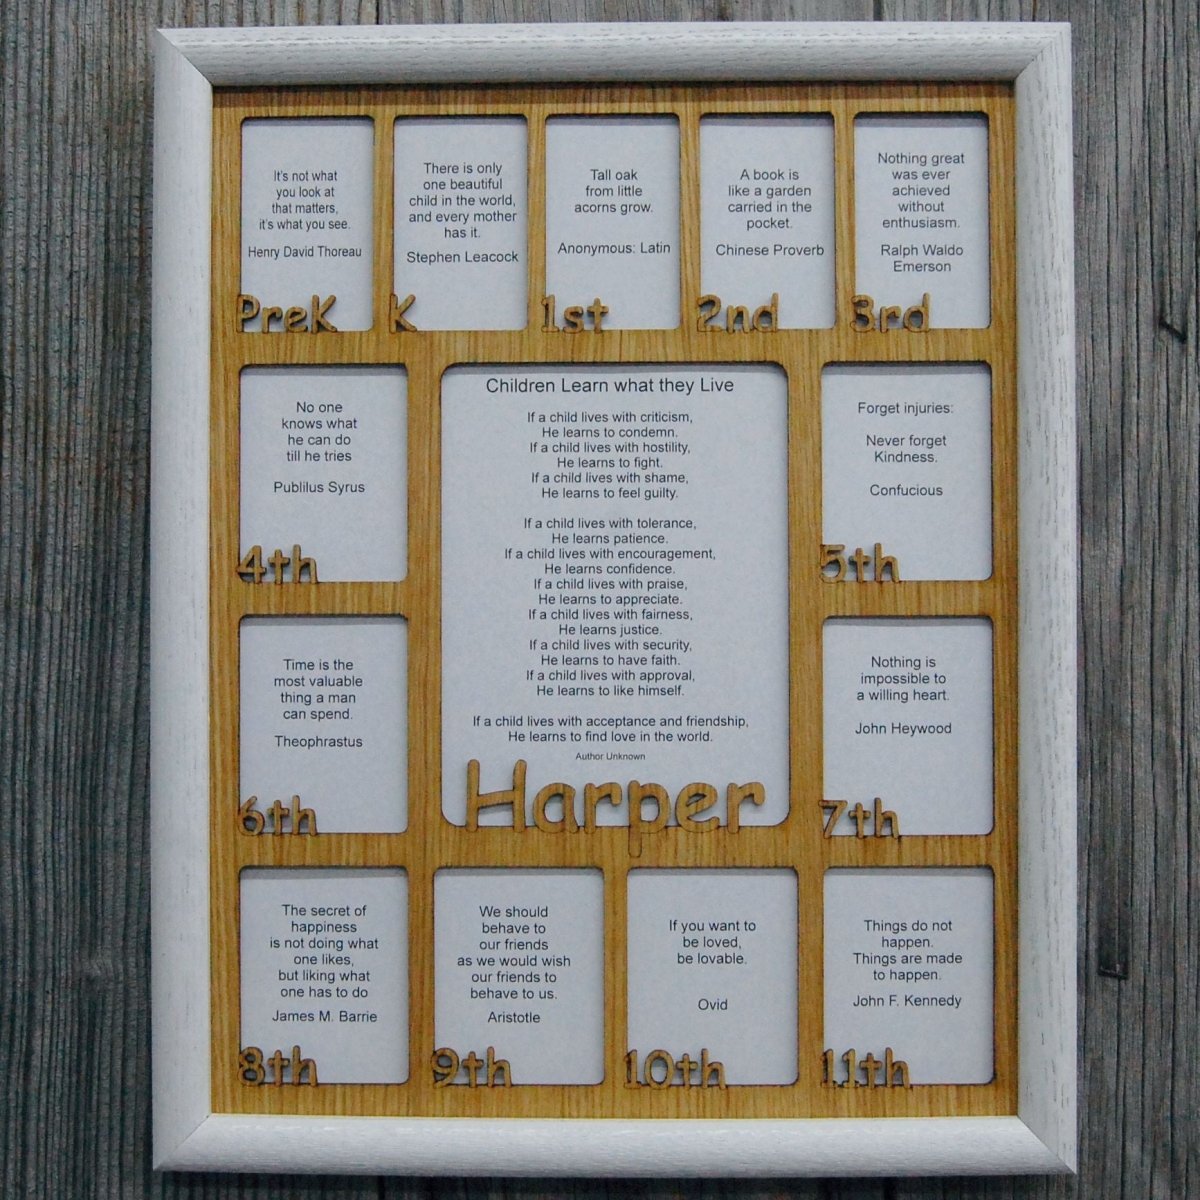 It's not what
you look at
that matters,
it's what you see.
Henry David Thoreau
PreK
There is only
one beautiful
child in the world,
and every mother
has it.
Stephen Leacock
K
Tall oak
from little
acorns grow.
Anonymous: Latin
1st
A book is
like a garden
carried in the
pocket.
Chinese Proverb
2nd
Nothing great
was ever
achieved
without
enthusiasm.
Ralph Waldo
Emerson
3rd
No one
knows what
he can do
till he tries
Publilus Syrus
4th
Children Learn what they Live
If a child lives with criticism,
He learns to condemn.
If a child lives with hostility,
He learns to fight.
If a child lives with shame,
He learns to feel guilty.
If a child lives with tolerance,
He learns patience.
If a child lives with encouragement,
He learns confidence.
If a child lives with praise,
He learns to appreciate.
If a child lives with fairness,
He learns justice.
If a child lives with security,
He learns to have faith.
If a child lives with approval,
He learns to like himself.
If a child lives with acceptance and friendship,
He learns to find love in the world.
Author Unknown
Harper
Forget injuries:
Never forget
Kindness.
Confucious
5th
Time is the
most valuable
thing a man
can spend.
Theophrastus
6th
Nothing is
impossible to
a willing heart.
John Heywood
7th
The secret of
happiness
is not doing what
one likes,
but liking what
one has to do
James M. Barrie
8th
We should
behave to
our friends
as we would wish
our friends to
behave to us.
Aristotle
9th
If you want to
be loved,
be lovable.
Ovid
10th
Things do not
happen.
Things are made
to happen.
John F. Kennedy
11th